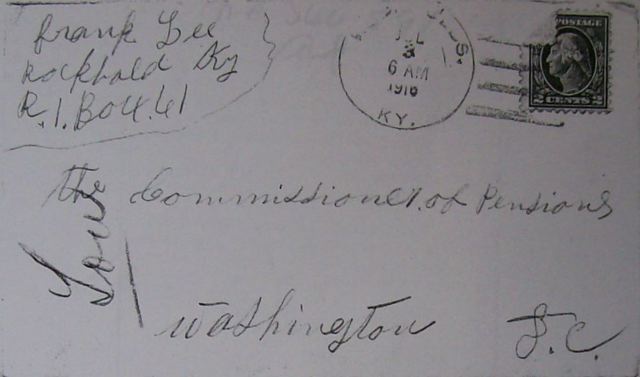 frank Lee
Rockhold Ky
R.1.Box.61
JUL
3
6 AM
1916
KY.
POSTAGE
2 CENTS 2
The Commissioner.of Pensions
Washington D.C.